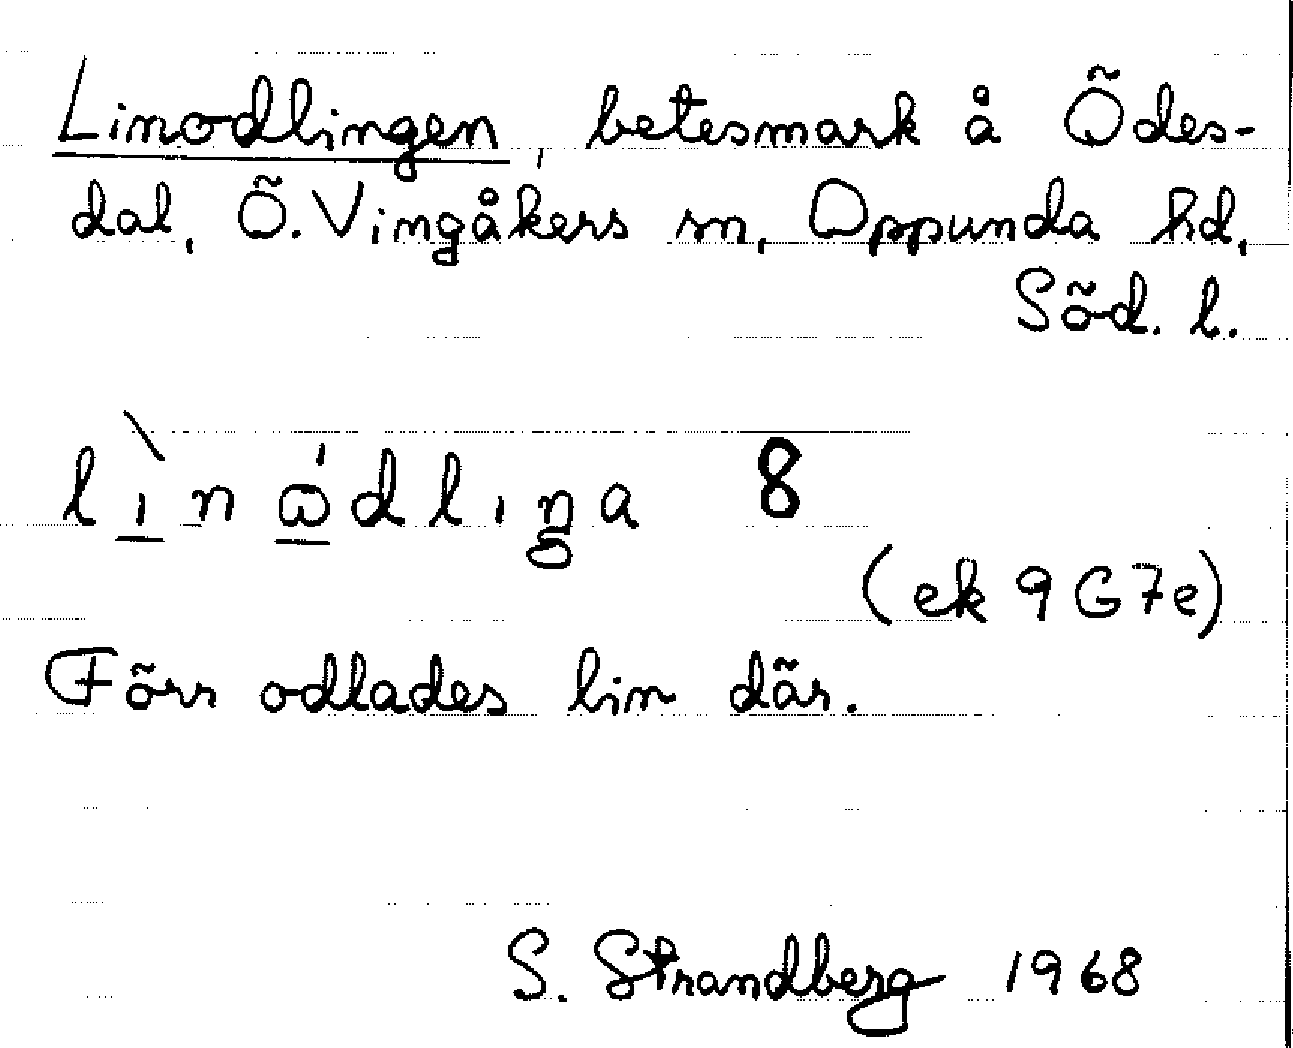 Linodlingen, betesmark å Ödes-
dal, Ö. Vingåkers sn, Oppunda hd,
Söd. l.
lìnɷ̀dlıŋa 8
(ek 9 G 7e)
Förr odlades lin där.
S. Strandberg 1968